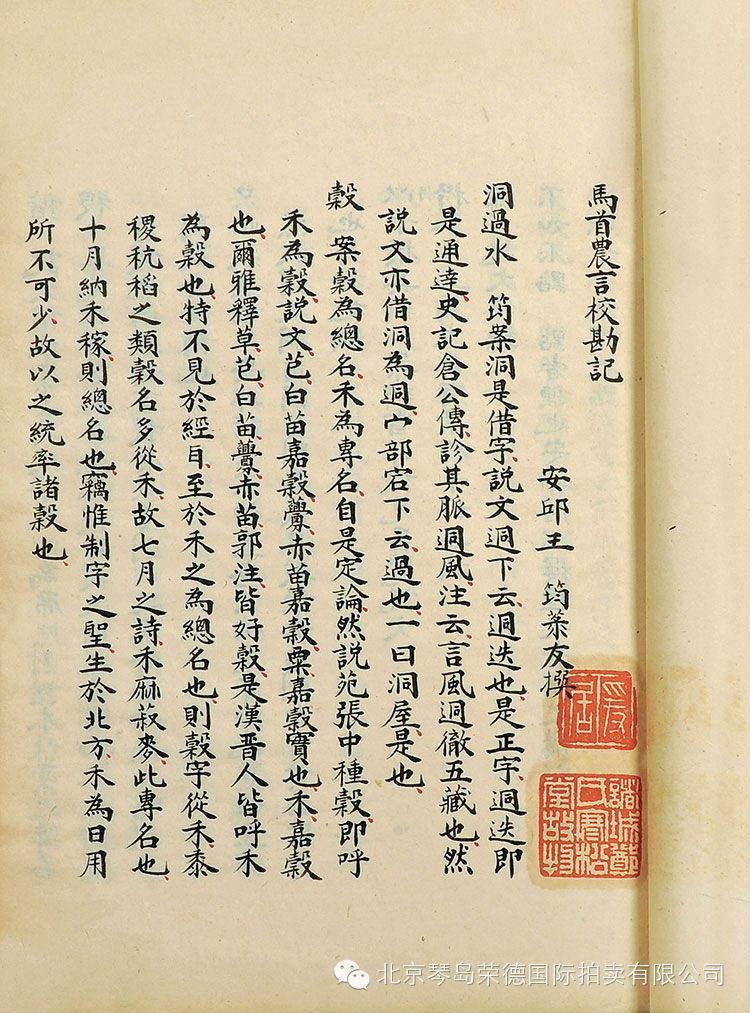 馬首農言校勘記
安邱王 筠菉友撰
洞過水 筠案洞是借字説文迵下云迵迭也是正字迵迭即
是通達史記倉公傳診其脈迵風注云言風迵徹五藏也然
説文亦借洞為迵宀部宕下云過也一曰洞屋是也
穀 案穀為總名禾為專名自是定論然説苑張中種穀即呼
禾為穀説文芑白苗嘉穀虋赤苗嘉穀粟嘉穀實也禾嘉穀
也爾雅釋草芑白苗虋赤苗郭注皆好穀是漢晉人皆呼禾
為穀也特不見於經耳至於禾之為總名也則穀字從禾黍
稷秔稻之類穀名多從禾故七月之詩禾麻菽麥此專名也
十月納禾稼則總名也竊惟制字之聖生於北方禾為日用
所不可少故以之統率諸穀也
北京琴岛荣德国际拍卖有限公司